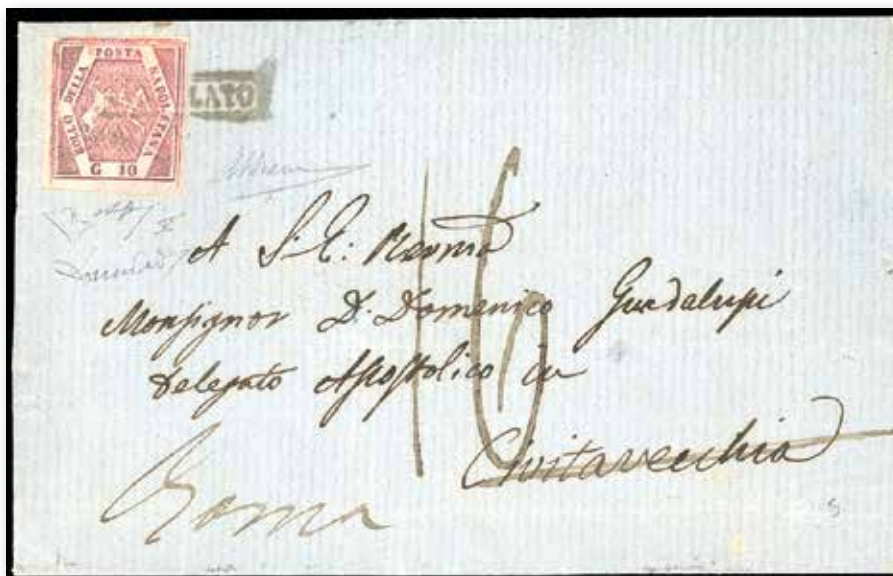 BOLLO DELLA POSTA NAPOLETANA
G 10
LATO
16
A S. E. Revma
Monsignor D. Domenico Guadalupi
Delegato Apostolico in
Civitavecchia
Roma